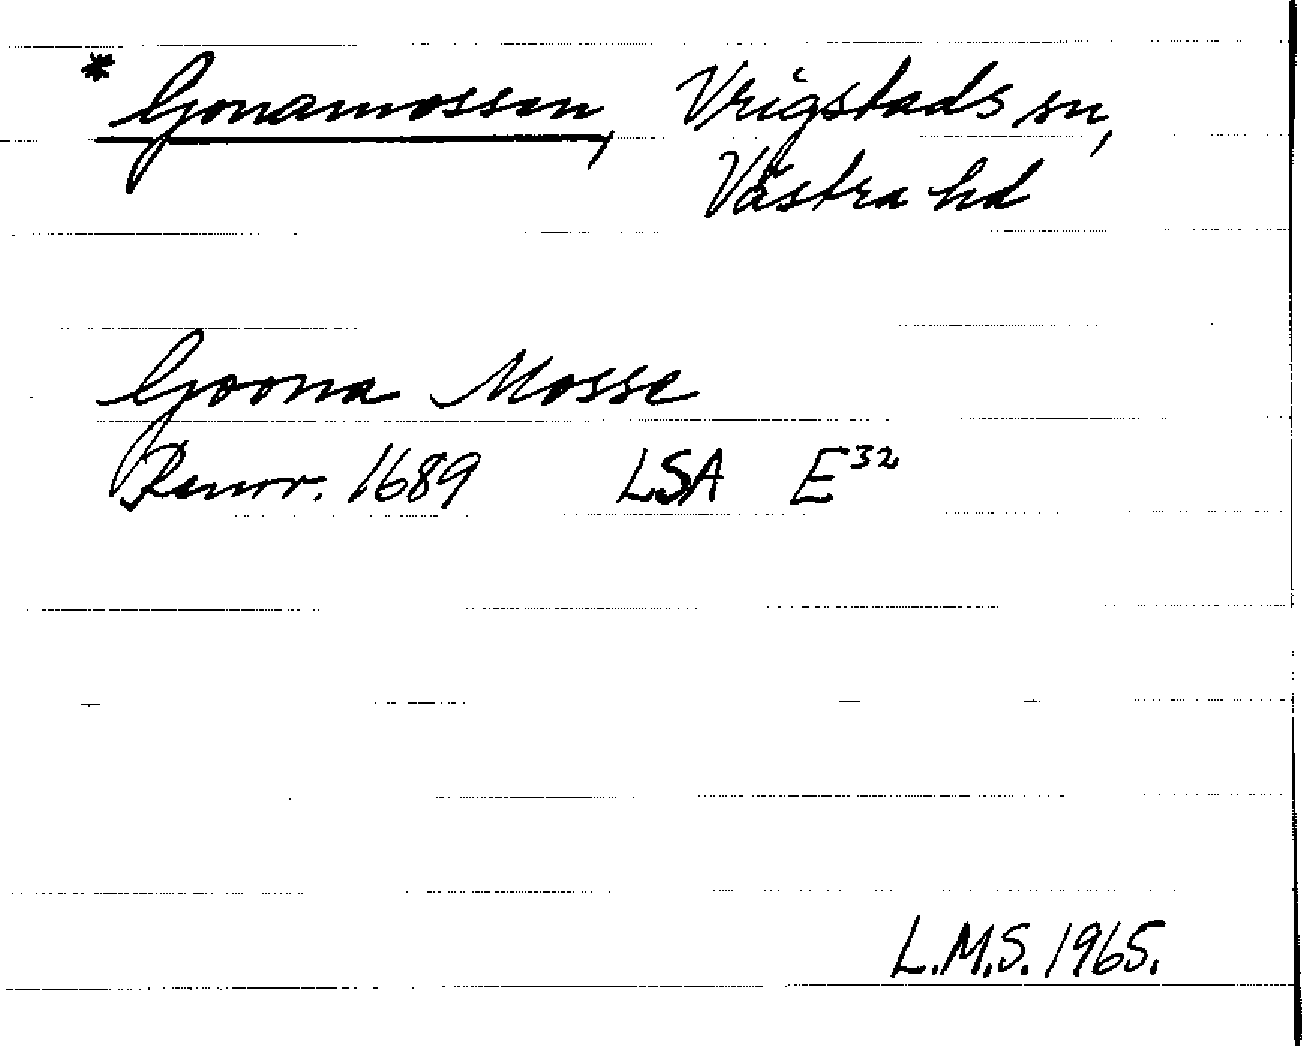 * Gonamossen, Vrigstads sn,
Västra hd
Goona Mosse
Renov. 1689 LSA E³²
L.M.S. 1965.